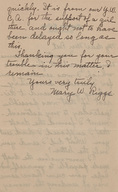 quickly. It is from our Y.W.
C.A. for the support of a girl
there and ought not to have
been delayed so long as
this.
Thanking you for your
trouble in this matter, I
remain
Yours very truly
Mary W. Riggs